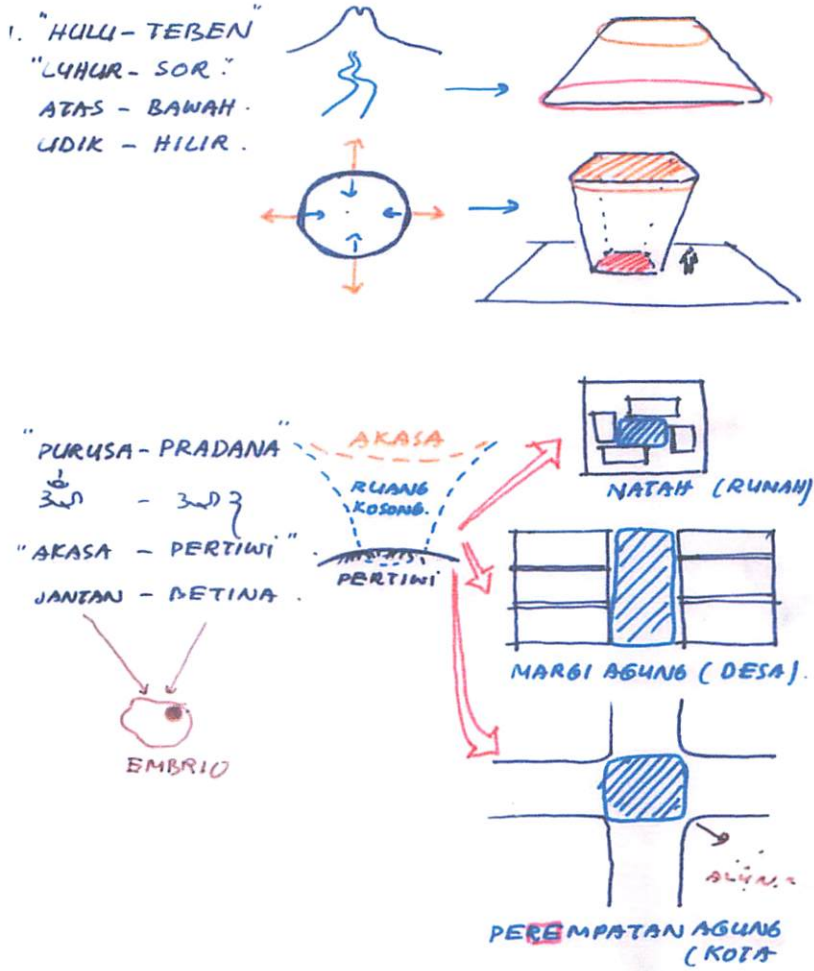 1. "HULU - TEBEN"
"LUHUR - SOR."
ATAS - BAWAH.
UDIK - HILIR.
"PURUSA - PRADANA"
"AKASA - PERTIWI".
JANTAN - BETINA.
EMBRIO
AKASA
RUANG
KOSONG.
PERTIWI
NATAH (RUNAH)
MARGI AGUNG (DESA).
PEREMPATAN AGUNG
(KOTA